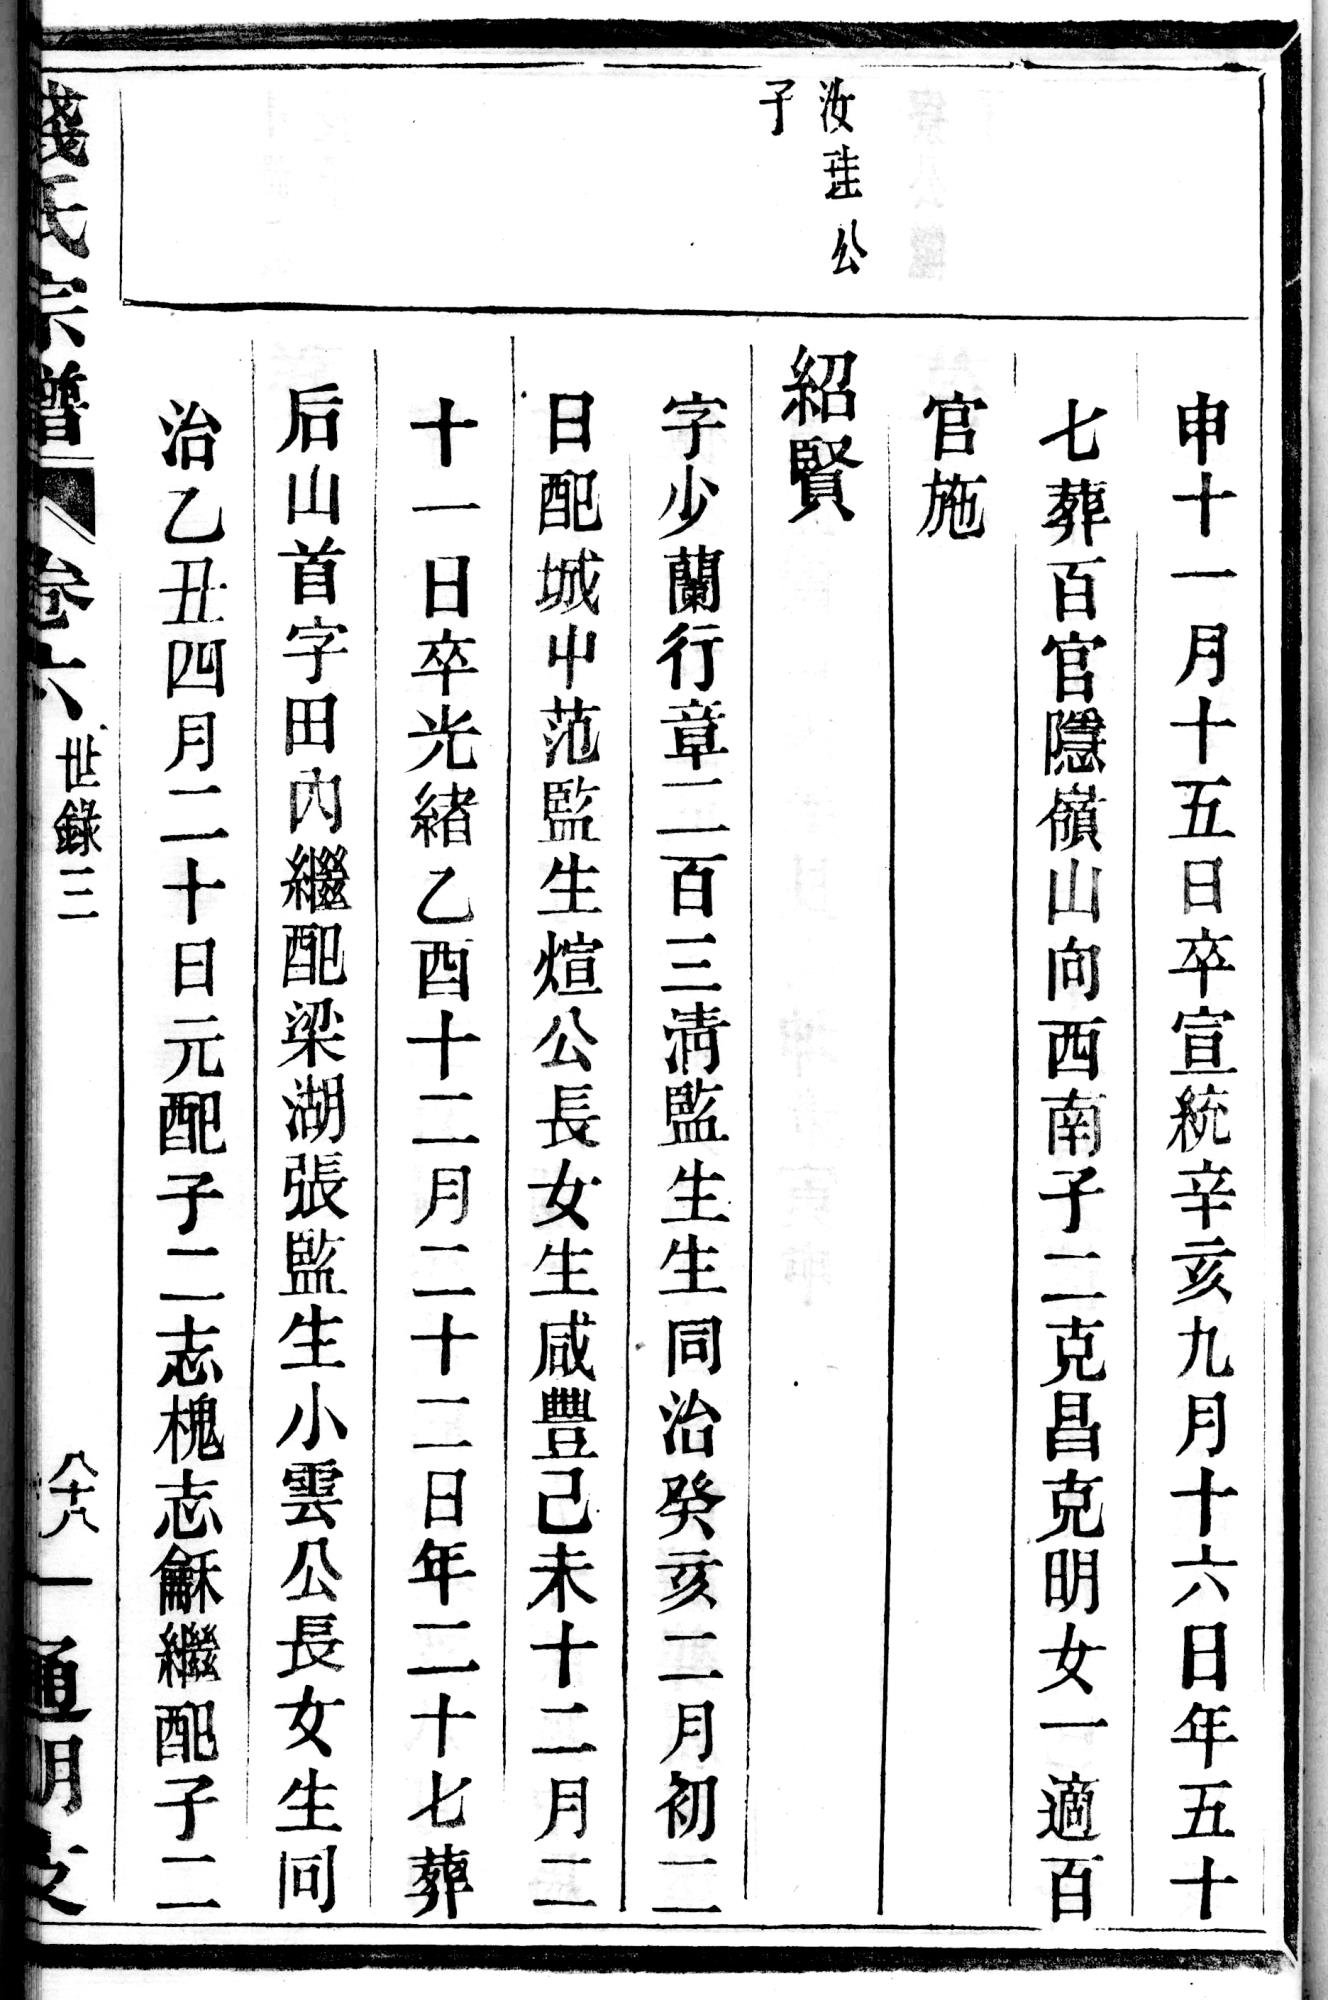 汝珪公
子
申十一月十五日卒宣統辛亥九月十六日年五十
七葬百官隱嶺山向西南子二克昌克明女一適百
官施
紹賢
字少蘭行章二百三淸監生生同治癸亥二月初二
日配城中范監生煊公長女生咸豐己未十二月二
十一日卒光緒乙酉十二月二十二日年二十七葬
后山首字田內繼配梁湖張監生小雲公長女生同
治乙丑四月二十日元配子二志槐志龢繼配子二
錢氏宗譜 卷六 世錄三 八十八 通明支